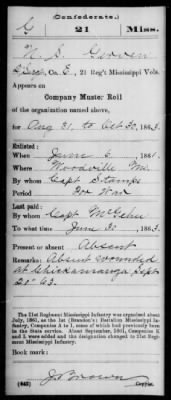 (Confederate.)
G 21 Miss.
Girven
2 Sergt, Co. E, 21 Reg't Mississippi Vols.
Appears on
Company Muster Roll
of the organization named above,
for Aug 31, to Oct 30, 1863.
Enlisted:
When June 6, 1861.
Where Woodville Mi.
By whom Capt Stamps
Period For War
Last paid:
By whom Capt McGehee
To what time June 30, 1863.
Present or absent Absent
Remarks: Absent wounded
at Chickamauga Sept
21st 63.
The 21st Regiment Mississippi Infantry was organized about
July, 1861, as the 1st (Brandon's) Battalion Mississippi In-
fantry, Companies A to I, some of which had previously been
in the State service. About September, 1861, Companies K and
L were added and the designation changed to 21st Regi-
ment Mississippi Infantry.
Book mark:
(642) J Brown
Copyist.